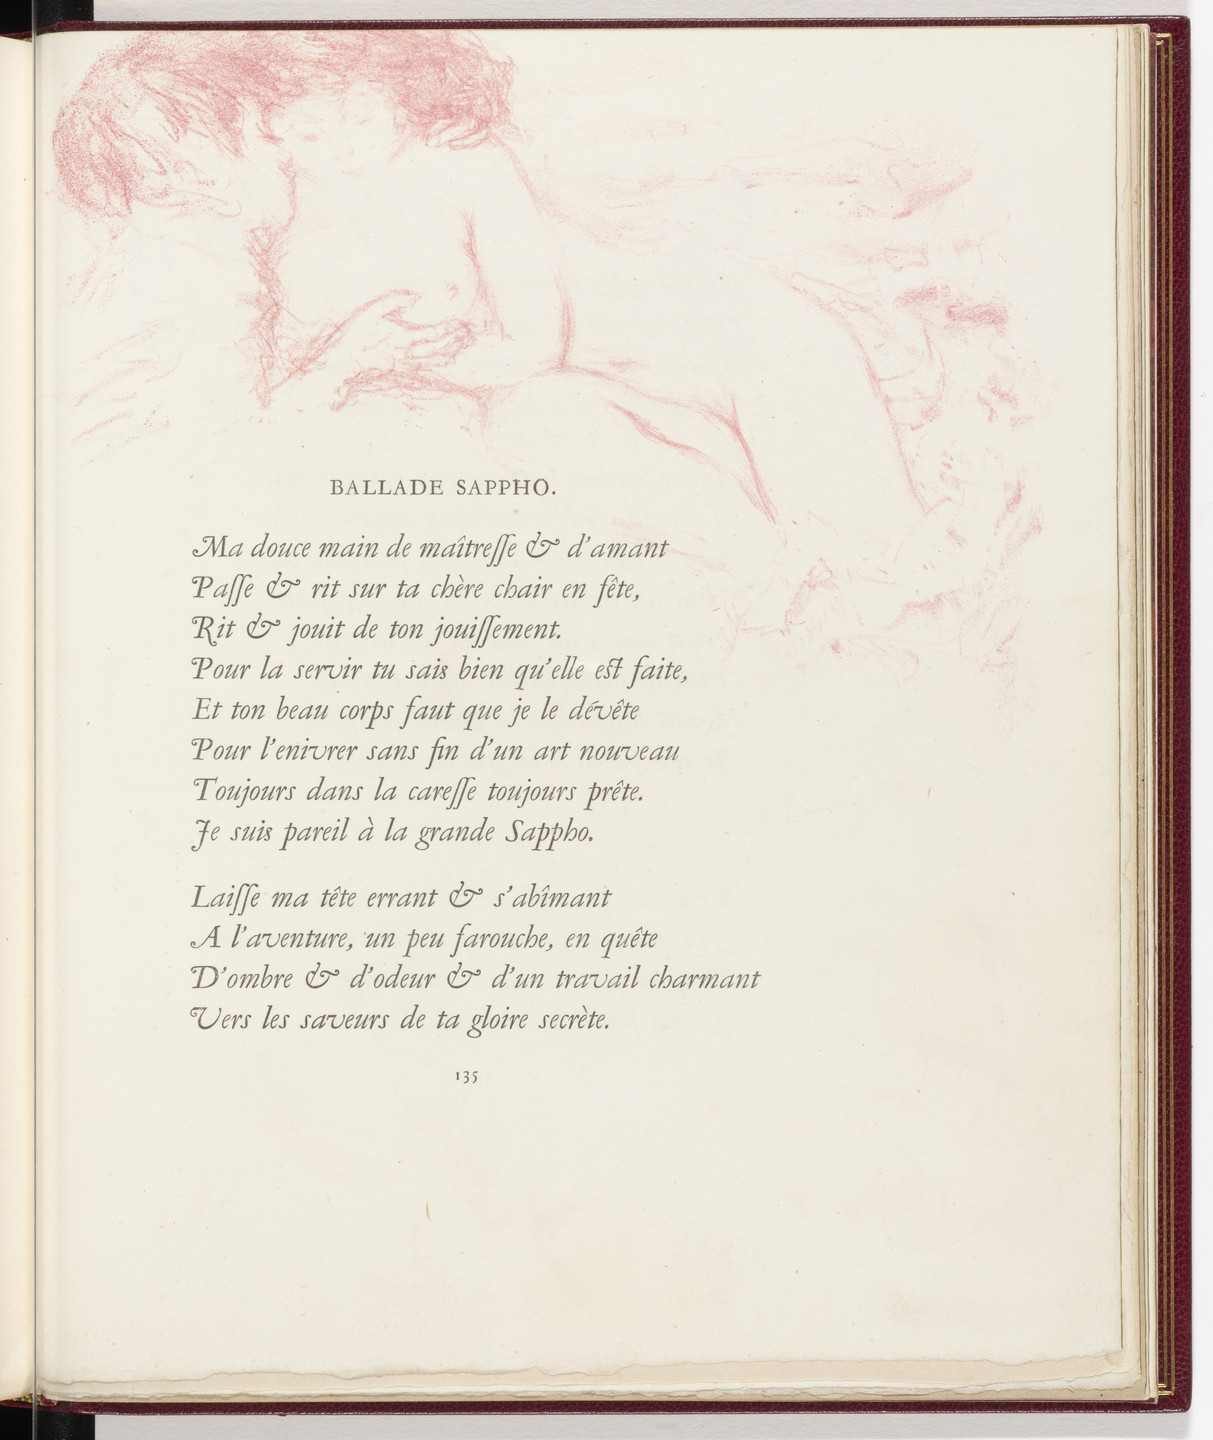 BALLADE SAPPHO.
Ma douce main de maîtreſſe & d'amant
Paſſe & rit sur ta chère chair en fête,
Rit & jouit de ton jouiſſement.
Pour la servir tu sais bien qu'elle est faite,
Et ton beau corps faut que je le dévête
Pour l'enivrer sans fin d'un art nouveau
Toujours dans la careſſe toujours prête.
Je suis pareil à la grande Sappho.
Laiſſe ma tête errant & s'abîmant
A l'aventure, un peu farouche, en quête
D'ombre & d'odeur & d'un travail charmant
Vers les saveurs de ta gloire secrète.
135